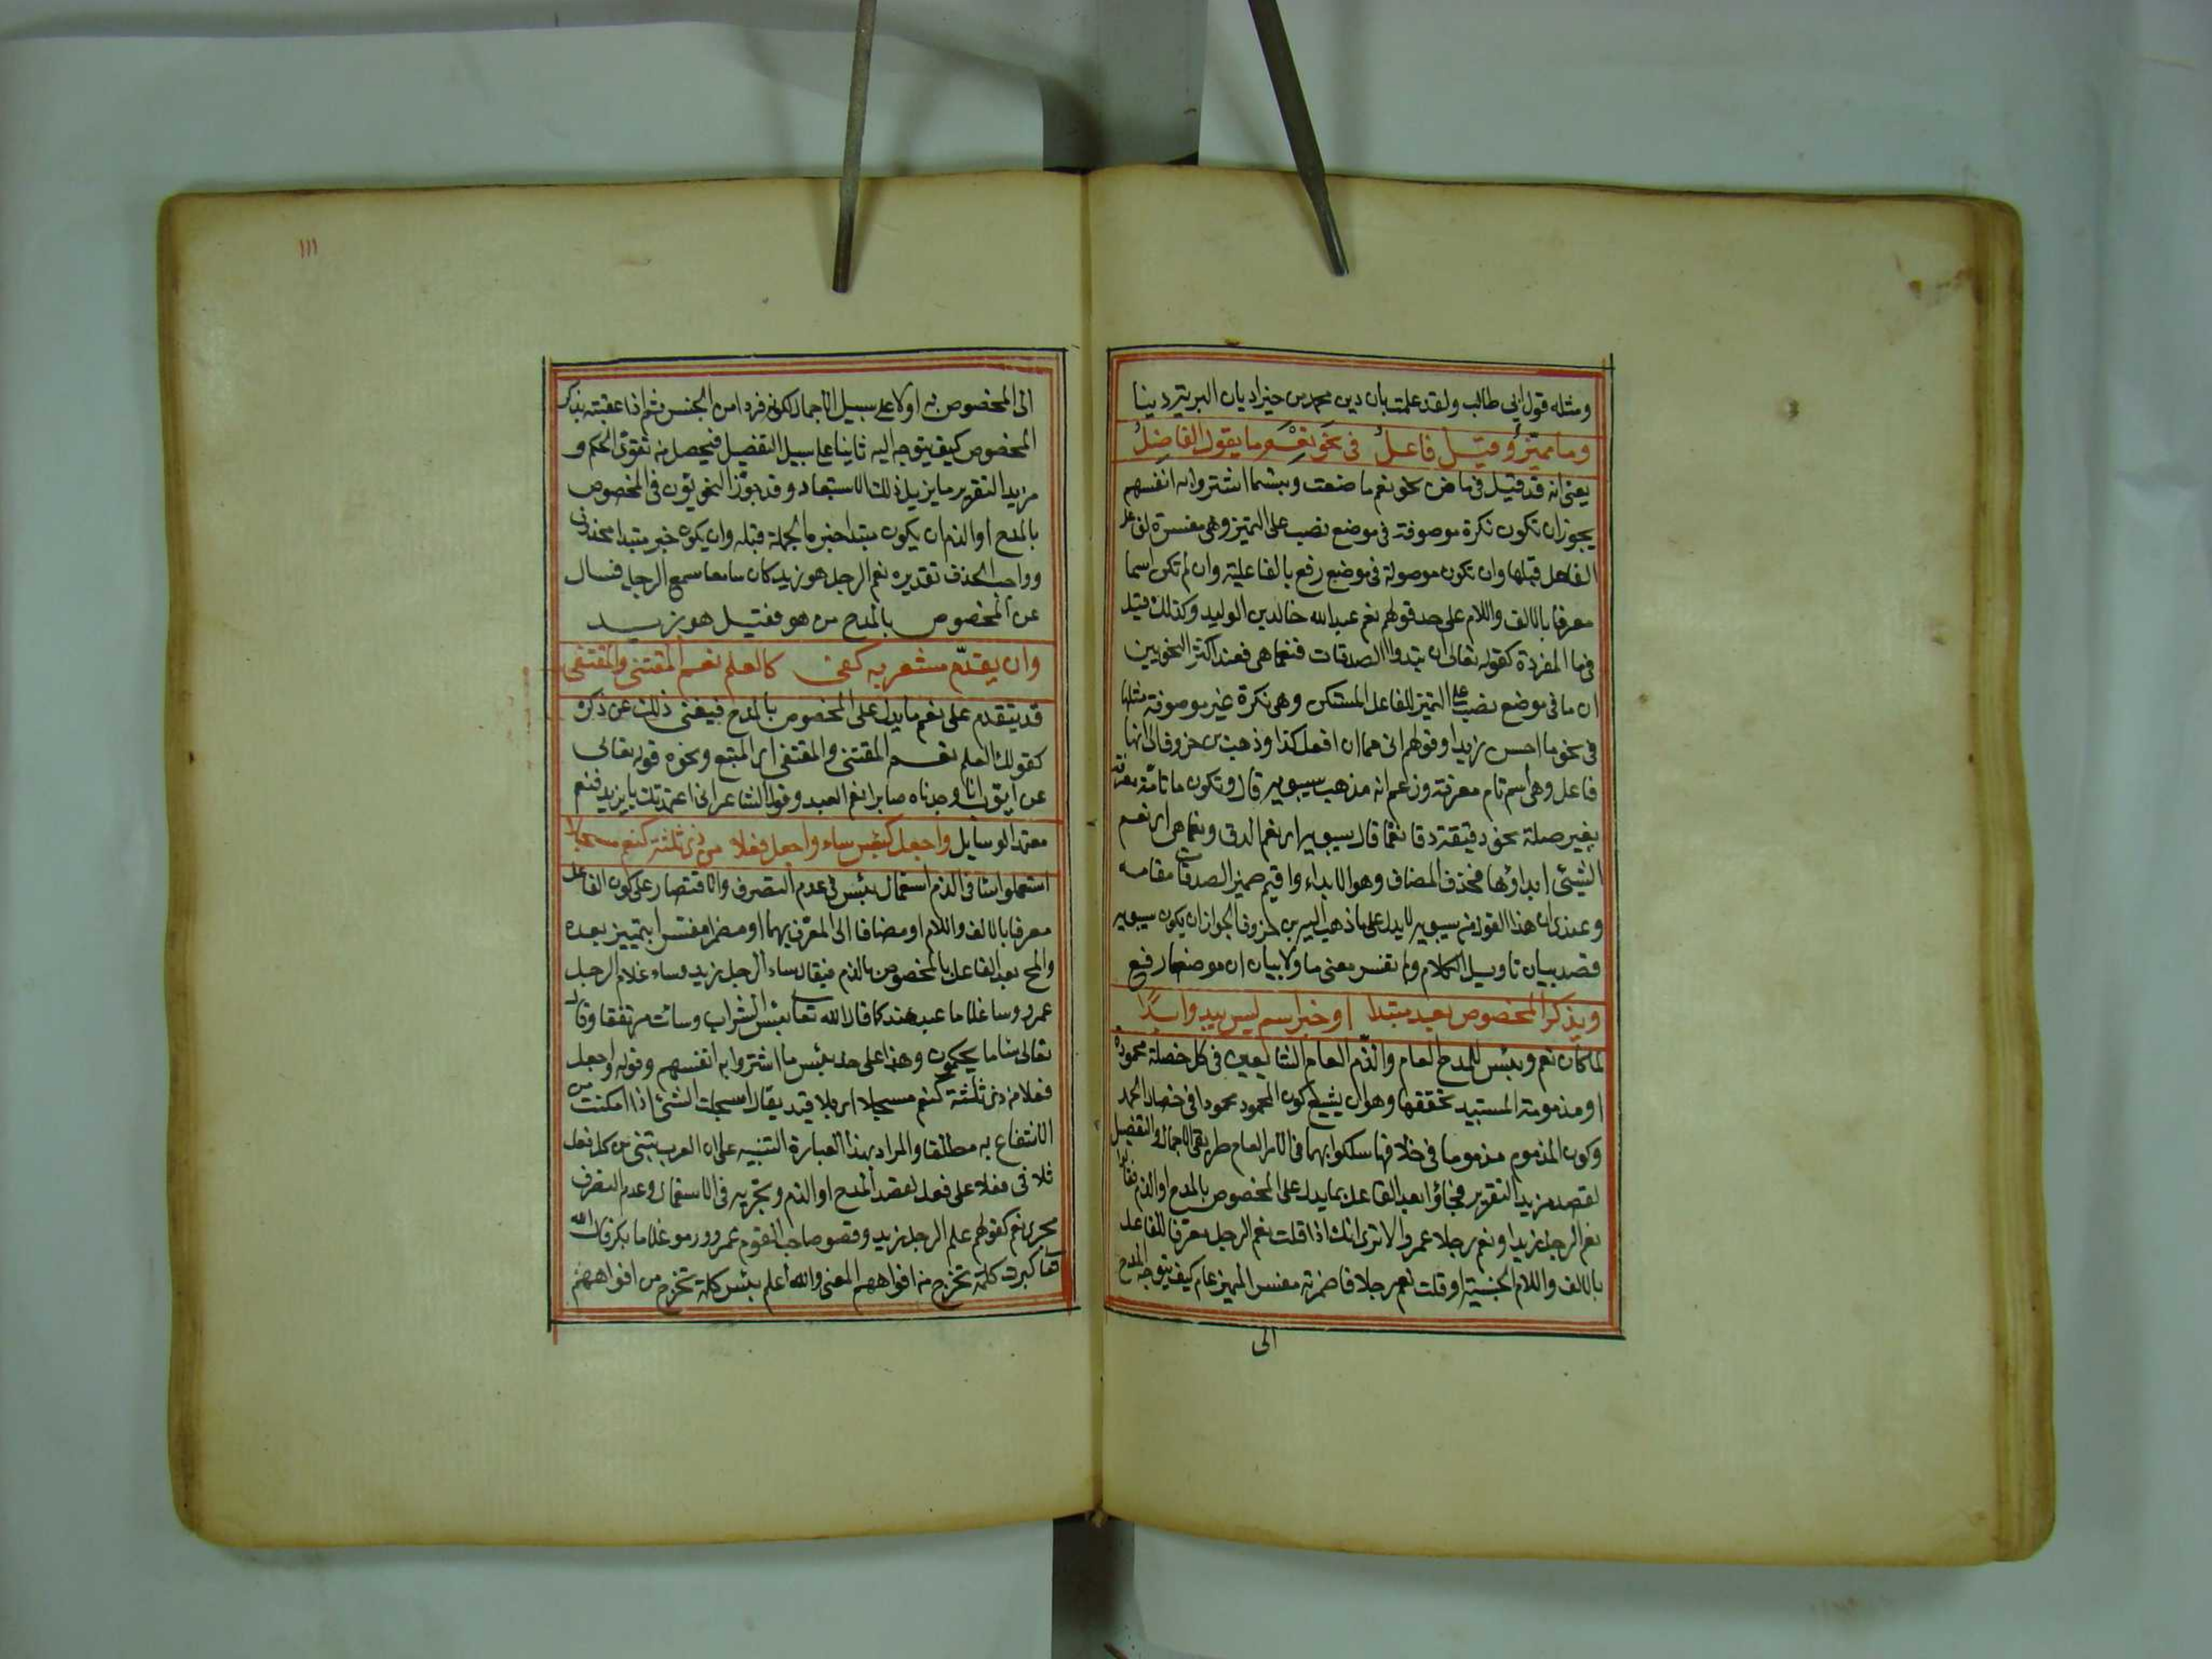 ومثله قول ابي طالب ولقد علمت بان دين محمد من خير اديان البرية دينا
وما مميز وقيل فاعل في نحو نعم ما يقول الفاضل
يعني انه قد قيل في ما من نحو نعم ما صنعت وبئسما اشتروا به انفسهم
يجوز ان تكون نكرة موصوفة في موضع نصب على التمييز وهي مفسرة لفاعل
الفعل قبلها وان تكون موصولة في موضع رفع بالفاعلية وان لم تكن اسما
معرفا بالالف واللام على حد قولهم نعم عبد الله خالد بن الوليد وكذلك قيل
في ما المفردة كقوله تعالى ان تبدوا الصدقات فنعما هي فعند اكثر النحويين
ان ما في موضع نصب على التميز للفاعل المستكن وهي نكرة غير موصوفة مثلها
في نحو ما احسن زيدا وقولهم اني مما ان افعل كذا وذهب بن خروف الى انها
فاعل وهي اسم تام معرفة وزعم انه مذهب سيبويه قال وتكون ما تامة معرفة
بغير صلة نحو دققته دقا نعما قال سيبويه اي نعم الدق ونعما هي اي نعم
الشيئ ابداؤها فحذف المضاف وهو الابداء واقيم ضمير الصدقات مقامه
وعندي ان هذا القول من سيبويه لا يدل على ما ذهب اليه بن خروف لجواز ان يكون سيبويه
قصد بيان تاويل الكلام ولم يفسر معنى ما ولا بيان ان موضعها رفع
ويذكر المخصوص بعد مبتدا او خبر اسم ليس يبدوا ابدا
لما كان نعم وبئس للمدح العام والذم العام الشايعين في كل خصلة محمودة
او مذمومة المستبعد تحققها وهو ان يشيع كون المحمود محمودا في خصال الحمد
وكون المذموم مذموما في خلافها سلكوا بهما في الامر العام طريقي الاجمال والتفصيل
لقصد مزيد التقرير فجاؤا بعد الفاعل بما يدل على المخصوص بالمدح او الذم فقالوا
نعم الرجل زيد او نعم رجلا عمرو الا ترى انك اذا قلت نعم الرجل معرفا للفاعل
بالالف واللام الجنسية او قلت نعم رجلا فاضمرته مفسر المميز عام كيف يتوجه المدح
الى
١١١
الى المخصوص به اولا على سبيل الاجمال لكونه فردا من الجنس ثم اذا عقبته بذكر
المخصوص كيف يتوجه اليه ثانيا على سبيل التفصيل فيحصل من تقوى الحكم و
مزيد التقرير ما يزيل ذلك الاستبعاد وقد جوز النحويون في المخصوص
بالمدح او الذم ان يكون مبتدا خبره الجملة قبله وان يكون خبر مبتدا محذوف
وواجب الحذف تقديره نعم الرجل هو زيد كان سامعا سمع الرجل فسال
عن المخصوص بالمدح من هو فقيل هو زيد
وان يقدم مشعر به كفى كالعلم نعم المقتنى والمقتفى
قد يتقدم على نعم ما يدل على المخصوص بالمدح فيغني ذلك عن ذكره
كقولك العلم نعم المقتنى والمقتفى اي المتبع ونحوه قوله تعالى
عن ايوب انا وجدناه صابرا نعم العبد وقول الشاعر اني اعتمدتك يا يزيد فنعم
معتمد الوسايل واجعل كبئس ساء واجعل فعلا من ذي ثلثة كنعم مسجلا
استعملوا ساء في الذم استعمال بئس في عدم التصرف والاقتصار على كون الفاعل
معرفا بالالف واللام او مضافا الى المعرف بهما او مضمرا مفسرا بتمييز بعده
والمجيء بعد الفاعل بالمخصوص بالذم فيقال ساء الرجل زيد وساء غلام الرجل
عمرو وساء غلاما عبد هند كما قال الله تعالى بئس الشراب وساءت مرتفقا وقال
تعالى ساء ما يحكمون وهذا على حد بئس ما اشتروا به انفسهم وقوله واجعل
فعلا من ذي ثلثة كنعم مسجلا اي بلا قيد يقال اسجلت الشئ اذا امكنت من
الانتفاع به مطلقا والمراد بهذه العبارة التنبيه على ان العرب تبني من كل فعل
ثلاثي فعلا على فعل لقصد المدح او الذم وتجريه في الاستعمال وعدم التصرف
مجرى نعم كقولهم علم الرجل زيد وقضو صاحب القوم عمرو ورمو غلاما بكر قال الله
تعا كبرت كلمة تخرج من افواههم المعنى والله اعلم بئس كلمة تخرج من افواههم